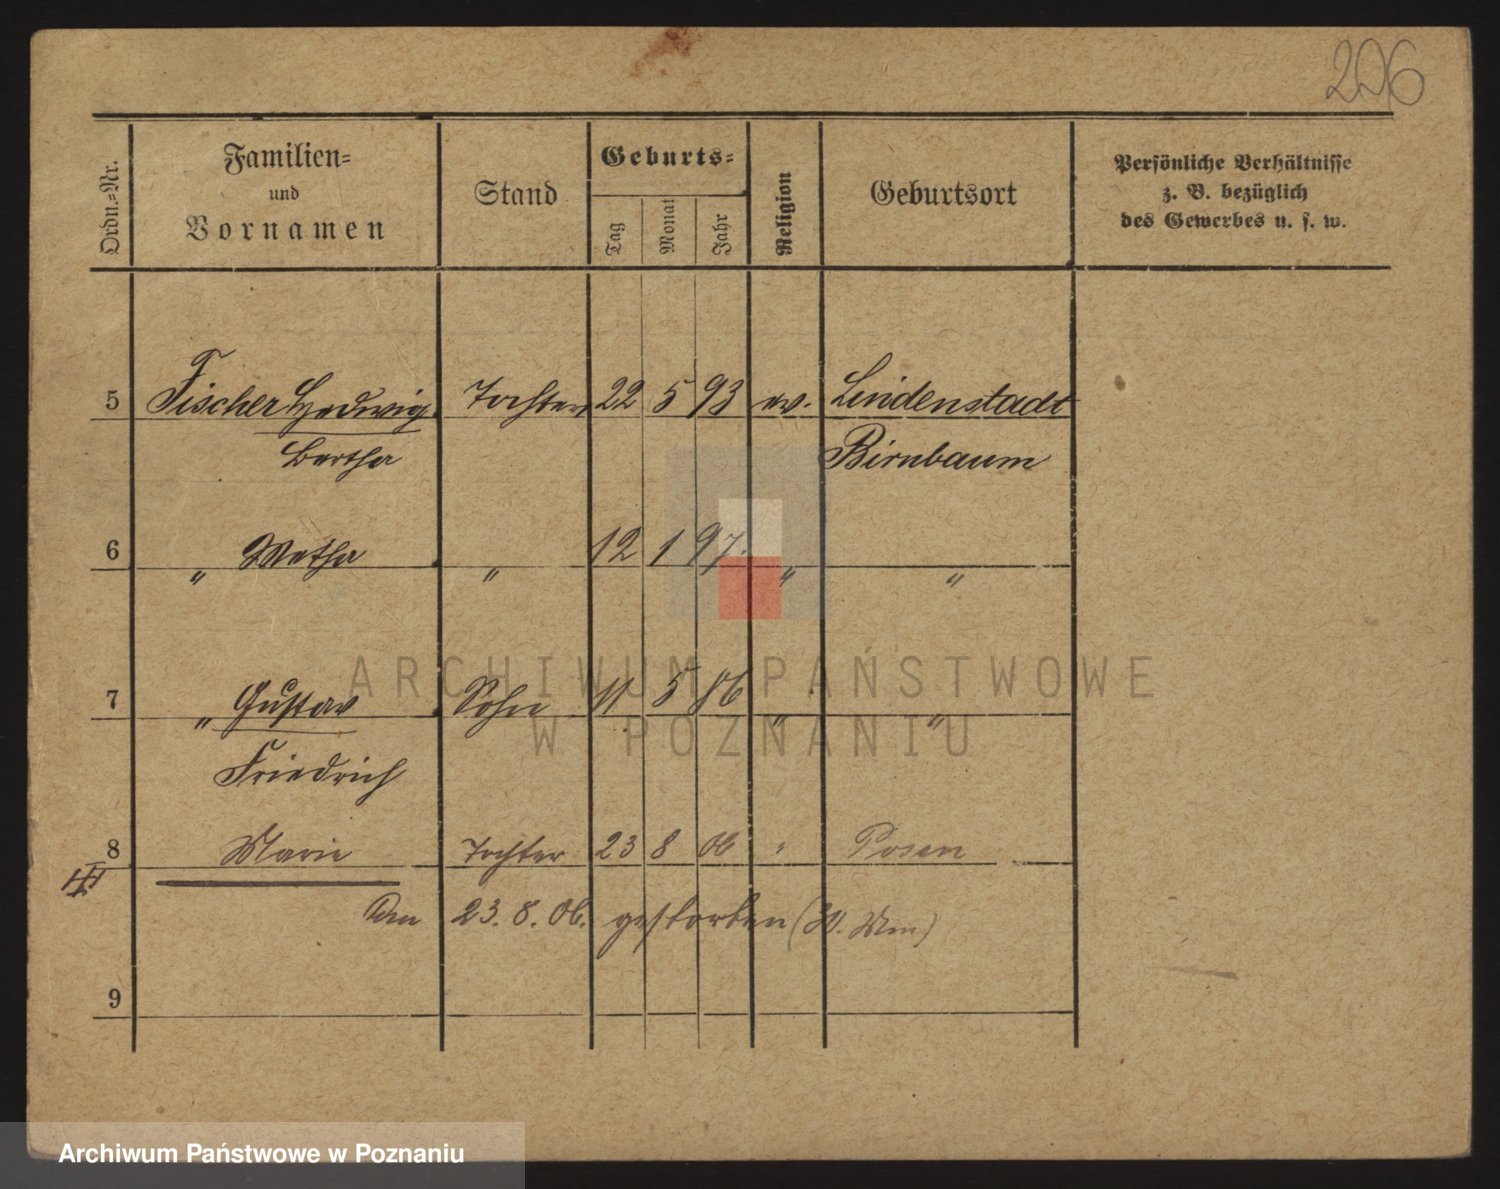 206
Ordn.-Nr.
Familien-
und
Vornamen
Stand
Geburts-
Tag
Monat
Jahr
Religion
Geburtsort
Persönliche Verhältnisse
z. B. bezüglich
des Gewerbes u. s. w.
5 Fischer Hedwig Tochter 22 5 93 ev. Lindenstadt
Bertha Birnbaum
6 " 12 1 97.
" " "
7 " Gustav Sohn 11 5 06
" "
Friedrich
8 Marie Tochter 23 8 06 " Posen
Am 23. 8. 06. gestorben
9
ARCHIWUM PAŃSTWOWE
W POZNANIU
Archiwum Państwowe w Poznaniu